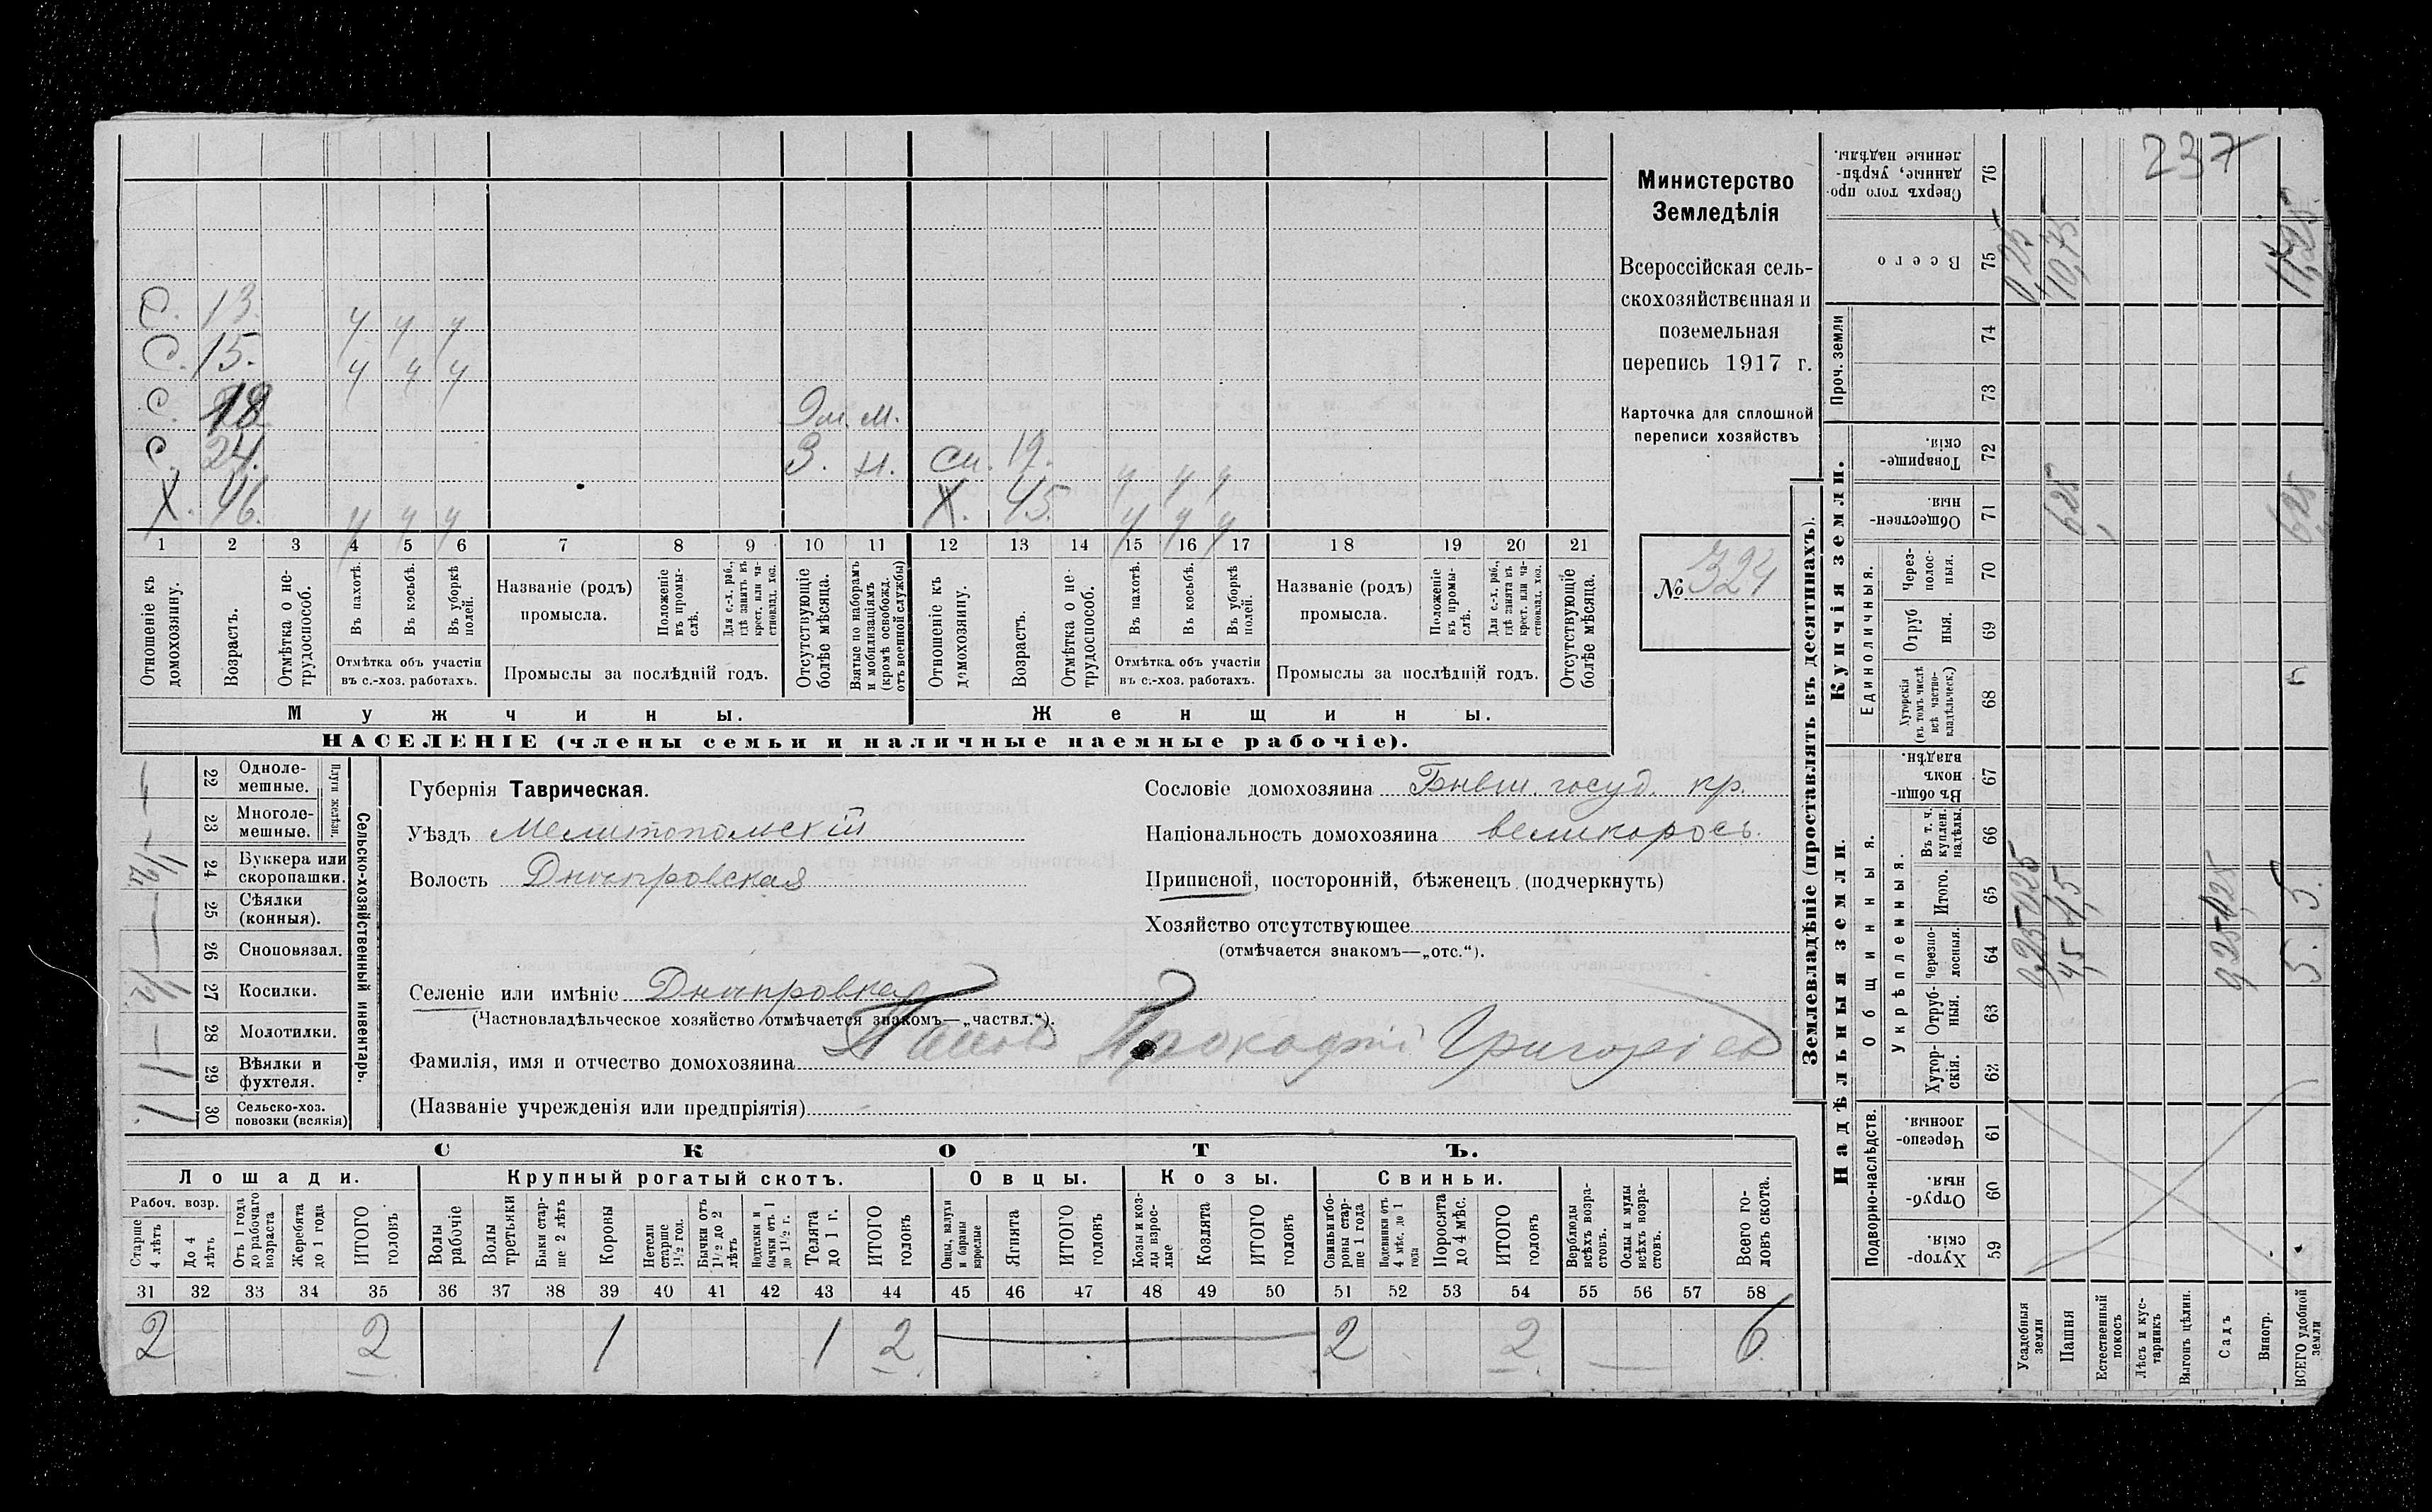 237
С. 13. у у у
С. 15. у у у
С. 18 Эм. М.
С. 24. З. Н. сн. 19. у у у
Х. 46. у у у Х. 45. у у у
1 2 3 4 5 6 7 8 9 10 11 12 13 14 15 16 17 18 19 20 21
Отношеніе къ домохозяину.
Возрастъ.
Отмѣтка о нетрудоспособ.
Въ пахотѣ.
Въ косьбѣ.
Въ уборкѣ полей.
Отмѣтка объ участіи
въ с.-хоз. работахъ.
Названіе (родъ)
промысла.
Положеніе въ промыслѣ.
Для с.-х. раб., гдѣ занятъ въ крест. или частновлад. хоз.
Промыслы за послѣдній годъ.
Отсутствующіе болѣе мѣсяца.
Взятые по наборамъ и мобилизаціямъ (кромѣ освобожд. отъ военной службы)
Отношеніе къ домохозяину.
Возрастъ.
Отмѣтка о нетрудоспособ.
Въ пахотѣ.
Въ косьбѣ.
Въ уборкѣ полей.
Отмѣтка объ участіи
въ с.-хоз. работахъ.
Названіе (родъ)
промысла.
Положеніе въ промыслѣ.
Для с.-х. раб., гдѣ занятъ въ крест. или частновлад. хоз.
Промыслы за послѣдній годъ.
Отсутствующіе болѣе мѣсяца.
Мужчины. Женщины.
НАСЕЛЕНІЕ (члены семьи и наличные наемные рабочіе).
Министерство
Земледѣлія
Всероссійская сель-
скохозяйственная и
поземельная
перепись 1917 г.
Карточка для сплошной
переписи хозяйствъ
№ 324
22 Одноле-
мешные.
23 Многоле-
мешные.
Плуги желѣзн.
24 Буккера или
скоропашки.
25 Сѣялки
(конныя).
26 Сноповязал.
27 Косилки.
28 Молотилки.
29 Вѣялки и
фухтеля.
30 Сельско-хоз.
повозки (всякія)
Сельско-хозяйственный инвентарь.
Губернія Таврическая.
Уѣздъ Мелитопольскій
Волость Днѣпровская
Селеніе или имѣніе Днѣпровка
(Частновладѣльческое хозяйство отмѣчается знакомъ—„частвл.“).
Фамилія, имя и отчество домохозяина Панов Прокофій Григоріев
(Названіе учрежденія или предпріятія)
Сословіе домохозяина Бывш. госуд. кр.
Національность домохозяина великоросъ.
Приписной, посторонній, бѣженецъ (подчеркнуть)
Хозяйство отсутствующее
(отмѣчается знакомъ—„отс.“).
СКОТЪ.
Лошади. Крупный рогатый скотъ. Овцы. Козы. Свиньи.
Рабоч. возр.
Старше 4 лѣтъ
До 4 лѣтъ
Отъ 1 года до рабочаго возраста
Жеребята до 1 года
ИТОГО головъ
Волы рабочіе
Волы третьяки
Быки старше 2 лѣтъ
Коровы
Нетели старше 1½ год.
Бычки отъ 1½ до 2 лѣтъ
Подтелки и бычки отъ 1 до 1½ г.
Телята до 1 г.
ИТОГО головъ
Овцы, валухи и бараны взрослые
Ягнята
ИТОГО головъ
Козы и козлы взрослые
Козлята
ИТОГО головъ
Свиньи боровы старше 1 года
Подсвинки отъ 4 мѣс. до 1 года
Поросята до 4 мѣс.
ИТОГО головъ
Верблюды всѣхъ возрастовъ.
Ослы и мулы всѣхъ возрастовъ.
Всего головъ скота.
31 32 33 34 35 36 37 38 39 40 41 42 43 44 45 46 47 48 49 50 51 52 53 54 55 56 57 58
2 2 1 1 2 2 2 6
Землевладѣніе (проставлять въ десятинахъ).
Надѣльныя земли. Купчія земли. Проч. земли
Подворно-наслѣдств.
Общинныя.
Укрѣпленныя.
Единоличныя.
76 Сверхъ того проданные, укрѣпленные надѣлы.
75 Всего 0,25 10,75 11,25
74
73
72 Товарищескій.
71 Общественныя. 6,25 6,25
70 Черезполосныя.
69 Отрубныя.
68 Хуторскія (въ томъ числѣ всѣ частновладѣльческ.)
67 Въ общинномъ владѣн.
66 Въ т. ч. куплен. надѣлы.
65 Итого. 0,25 4,5 0,25 5.
64 Черезполосныя. 0,25 4,5 0,25 5.
63 Отрубныя.
62 Хуторскія.
61 Черезполосныя
60 Отрубныя.
59 Хуторскія.
Усадебныя земли
Пашня
Естественный покосъ
Лѣсъ и кустарникъ
Выгонъ цѣлин.
Садъ
Виногр.
ВСЕГО удобной земли